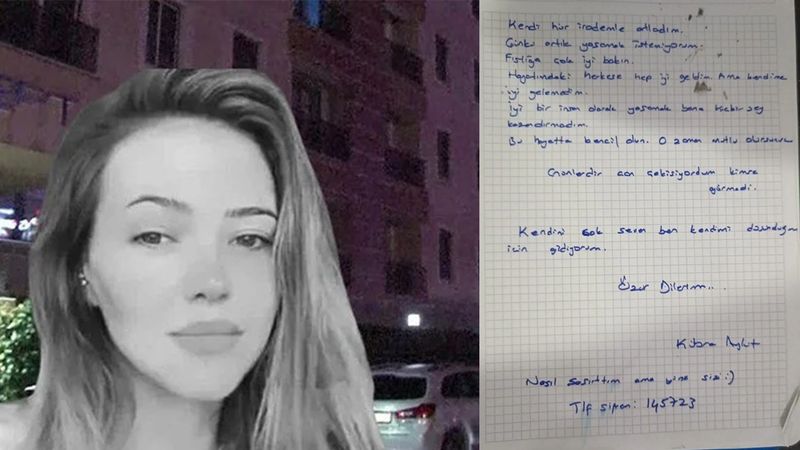 Kendi hür irademle atladım.
Çünkü artık yaşamak istemiyorum.
Fıstığa çok iyi bakın.
Hayatımdaki herkese hep iyi geldim. Ama kendime
iyi gelemedim.
İyi bir insan olarak yaşamak bana hiçbir şey
kazandırmadı.
Bu hayatta bencil olun. O zaman mutlu olursunuz
Günlerdir can çekişiyordum kimse
görmedi.
Kendini çok seven ben kendimi düşündüğüm
için gidiyorum.
Özür Dilerim..
Kübra Aykut
Nasıl şaşırttım ama yine sizi :)
Tlf şifrem: 145723